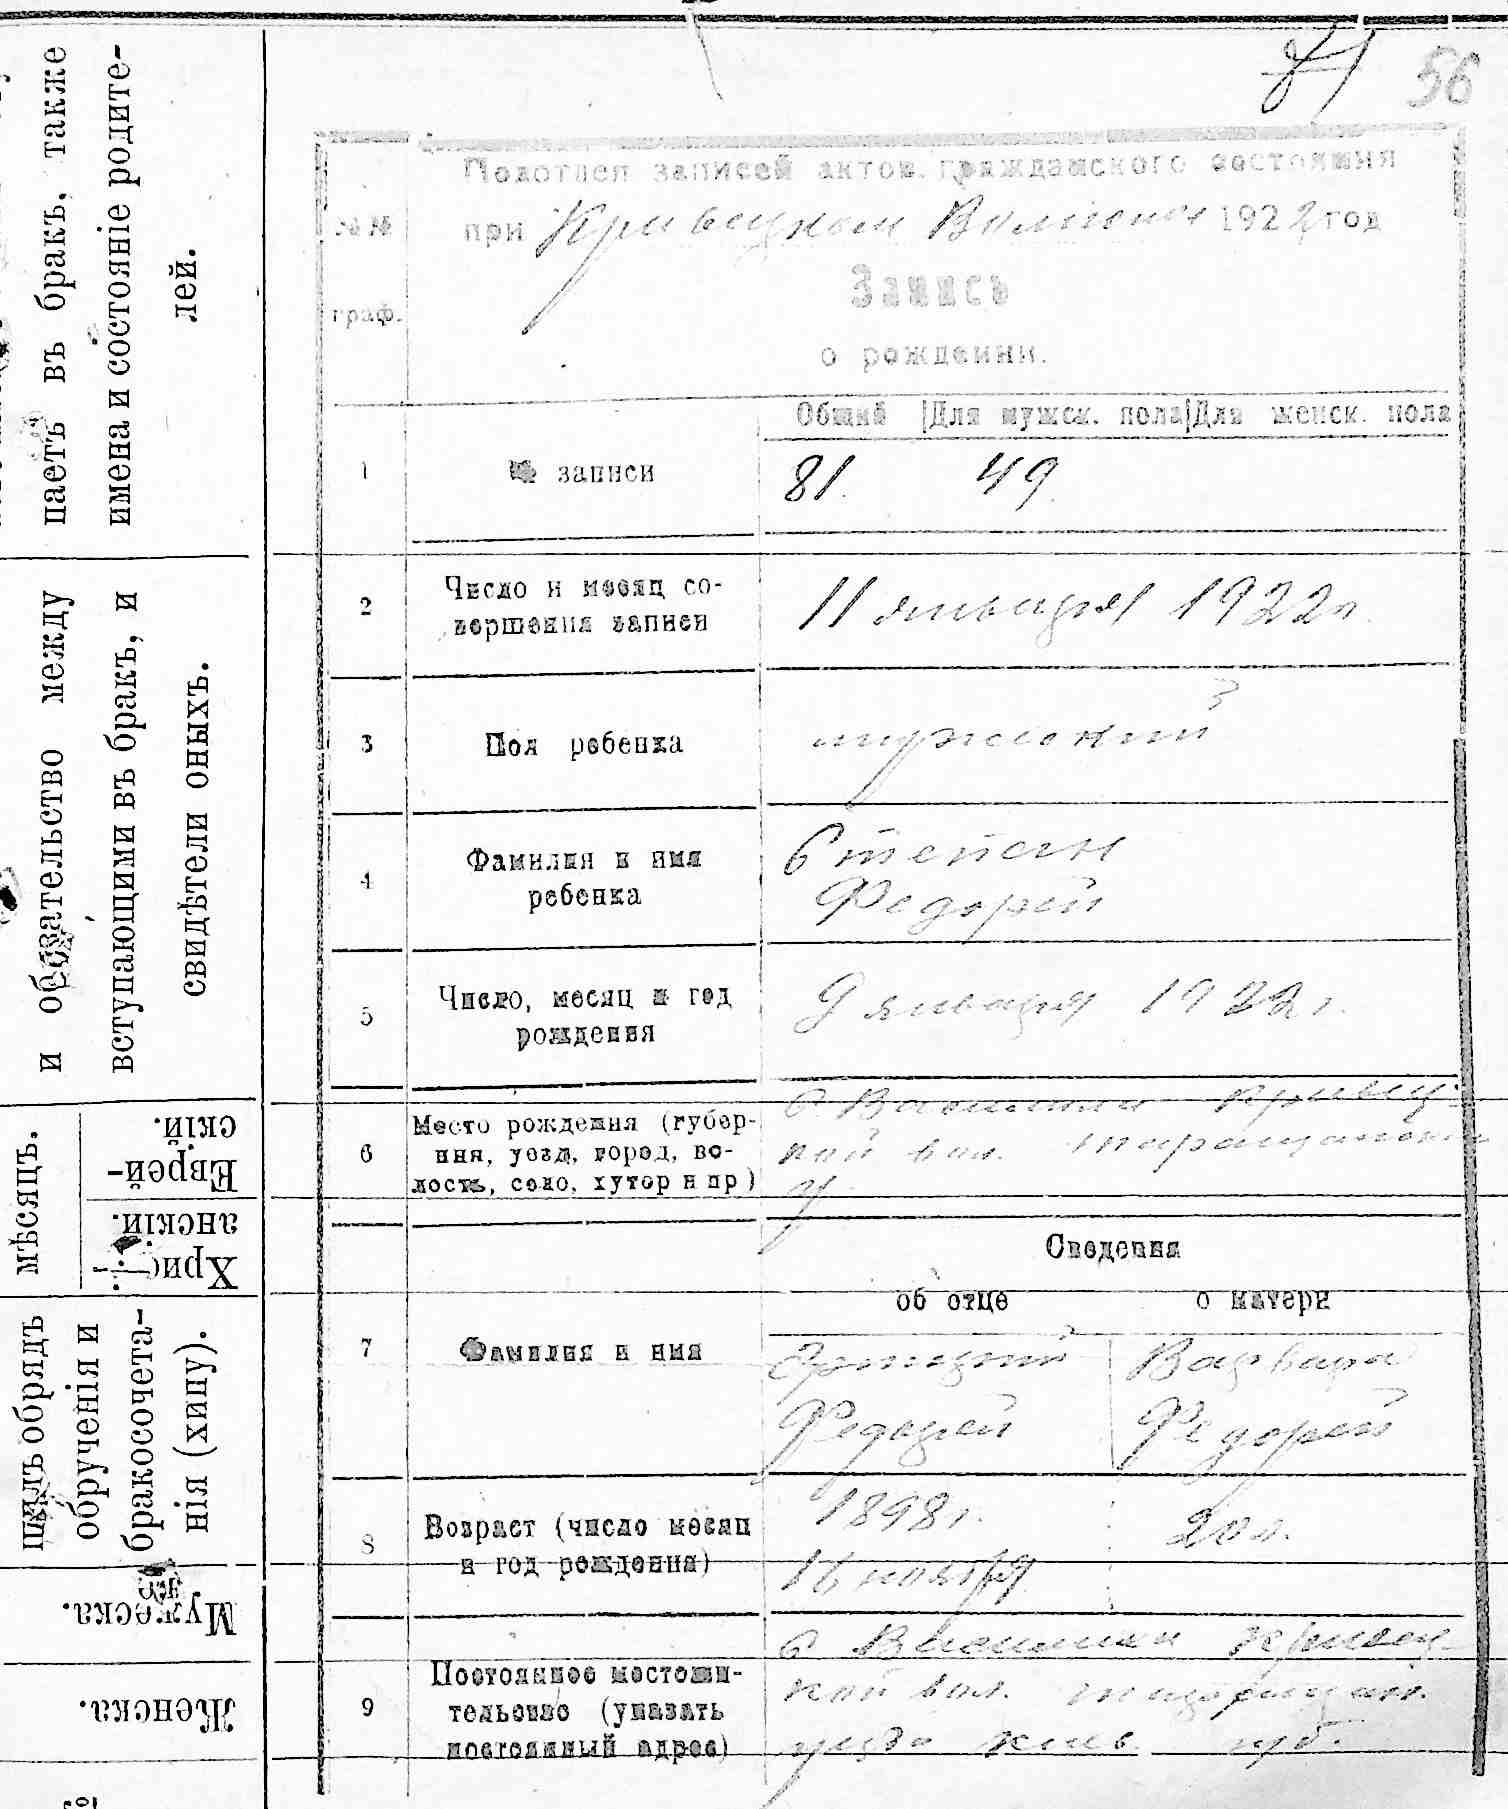 56
Подотдел записей актов гражданского состояния
при Кривецком Волисполк 1922 год
№№
граф.
Запись
о рождении.
Общий Для мужск. пола Для женск. пола
1 № записи 81. 49
2 Число и месяц со-
вершения записи
11 января 1922 г.
3 Пол ребенка мужской
4 Фамилия и имя
ребенка
Степан
Федорей
5 Число, месяц и год
рождения
9 января 1922 г.
6 Место рождения (губер-
ния, уезд, город, во-
лость, село, хутор и пр)
с кривец-
кой вол. таращанского
у
Сведения
об отце о матери
7 Фамилия и имя
Варвара
Федорей Федорей
8 Возраст (число месяц
и год рождения)
1898 г.
16 ноября
20 л.
9 Постоянное местожи-
тельство (указать
постоянный адрес)
с кривец-
кой вол. таращан.
уезда киев. губ.
паетъ въ бракъ, также
имена и состояніе родите-
лей.
и обязательство между
вступающими въ бракъ, и
свидѣтели оныхъ.
мѣсяцъ.
Еврей-
скій.
Хрис-
анскій.
шилъ обрядъ
обрученія и
бракосочета-
нія (хипу).
Мужеска.
Женска.